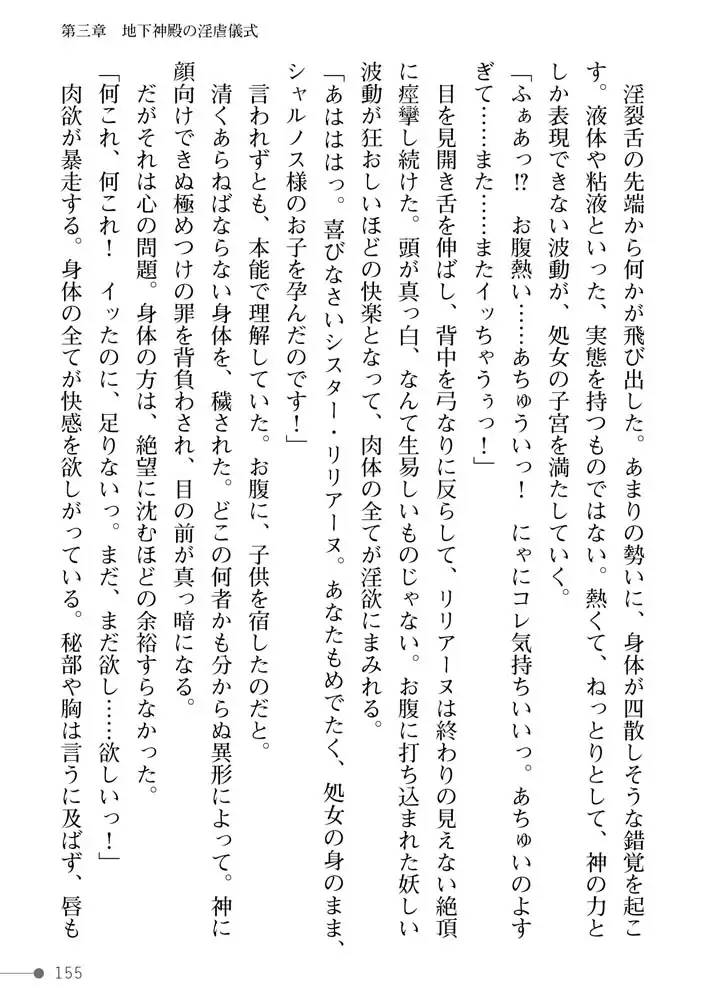 第三章　地下神殿の淫虐儀式
淫裂舌の先端から何かが飛び出した。あまりの勢いに、身体が四散しそうな錯覚を起こ
す。液体や粘液といった、実態を持つものではない。熱くて、ねっとりとして、神の力と
しか表現できない波動が、処女の子宮を満たしていく。
「ふぁあっ!?　お腹熱い……あちゅういっ！　にゃにコレ気持ちいいっ。あちゅいのよす
ぎて……また……またイッちゃうぅっ！」
目を見開き舌を伸ばし、背中を弓なりに反らして、リリアーヌは終わりの見えない絶頂
に痙攣し続けた。頭が真っ白、なんて生易しいものじゃない。お腹に打ち込まれた妖しい
波動が狂おしいほどの快楽となって、肉体の全てが淫欲にまみれる。
「あはははっ。喜びなさいシスター・リリアーヌ。あなたもめでたく、処女の身のまま、
シャルノス様のお子を孕んだのです！」
言われずとも、本能で理解していた。お腹に、子供を宿したのだと。
清くあらねばならない身体を、穢された。どこの何者かも分からぬ異形によって。神に
顔向けできぬ極めつけの罪を背負わされ、目の前が真っ暗になる。
だがそれは心の問題。身体の方は、絶望に沈むほどの余裕すらなかった。
「何これ、何これ！　イッたのに、足りないっ。まだ、まだ欲し……欲しいっ！」
肉欲が暴走する。身体の全てが快感を欲しがっている。秘部や胸は言うに及ばず、唇も
155